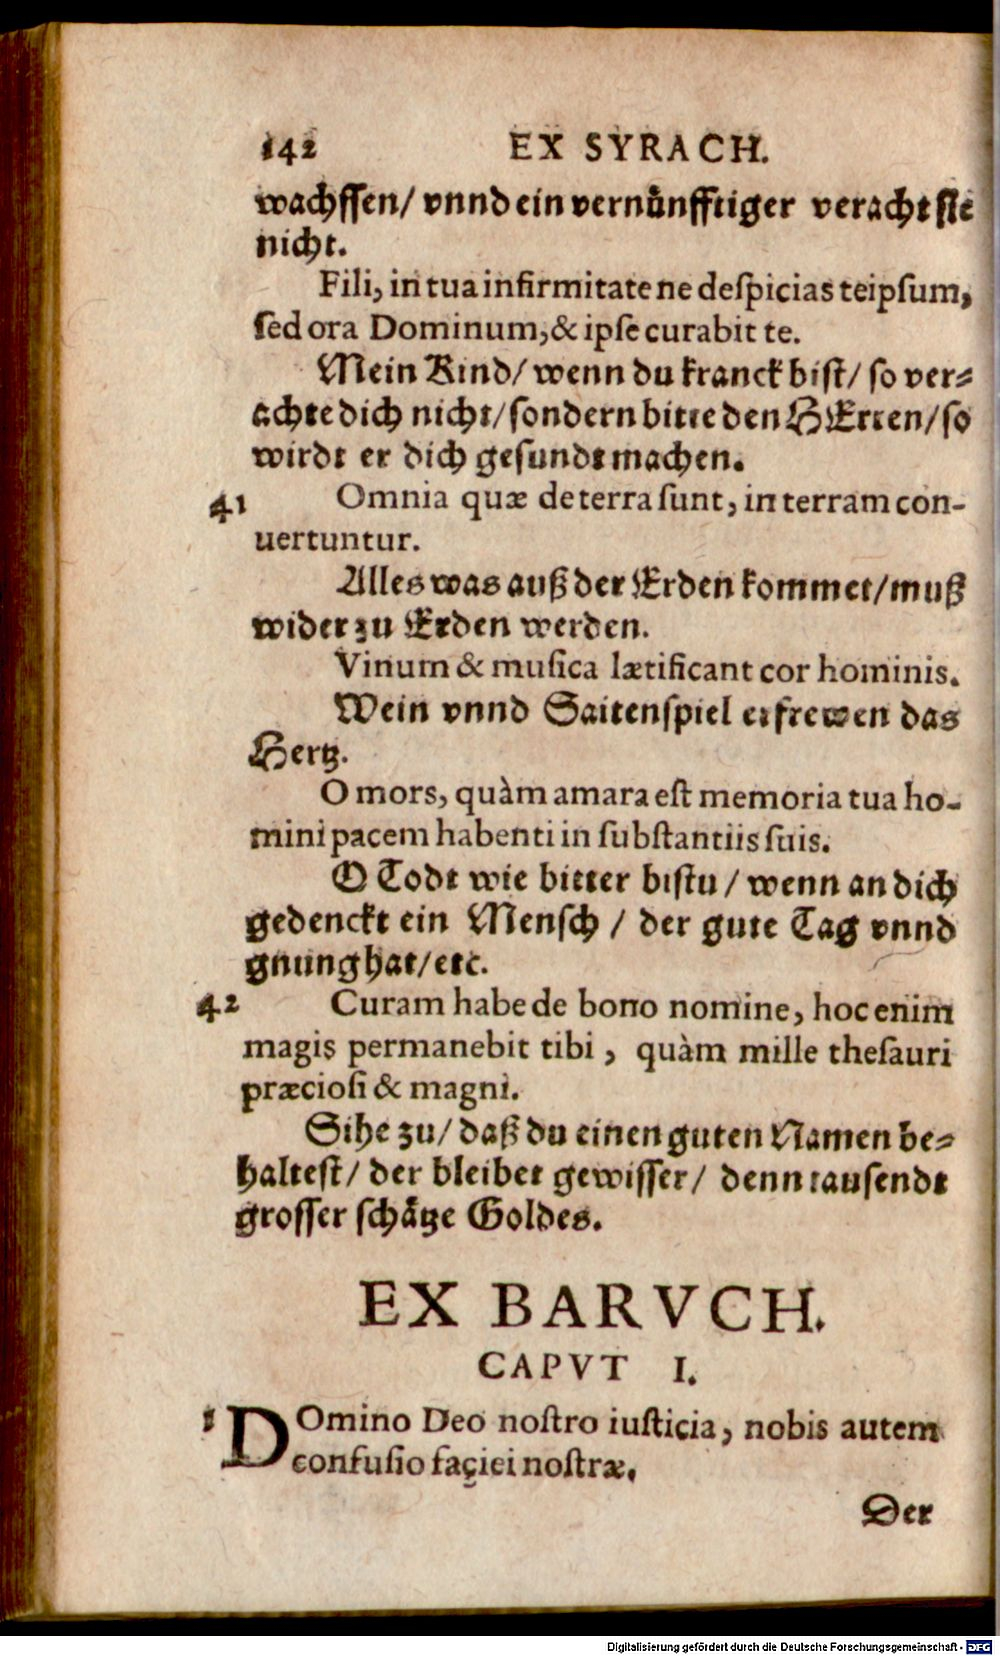 142 EX SYRACH.
wachſſen/ vnnd ein vernuͤnfftiger veracht ſie
nicht.
Fili, in tua infirmitate ne deſpicias teipſum,
ſed ora Dominum, & ipſe curabit te.
Mein Kind/ wenn du kranck biſt/ ſo ver⸗
achte dich nicht/ ſondern bitte den HErren/ ſo
wirdt er dich geſundt machen.
41 Omnia quæ de terra ſunt, in terram con-
uertuntur.
Alles was auß der Erden kommet/ muß
wider zu Erden werden.
Vinum & muſica lætificant cor hominis.
Wein vnnd Saitenſpiel erfrewen das
Hertz.
O mors, quàm amara eſt memoria tua ho-
mini pacem habenti in ſubſtantiis ſuis.
O Todt wie bitter biſtu/ wenn an dich
gedenckt ein Menſch/ der gute Tag vnnd
gnung hat/ etc.
42 Curam habe de bono nomine, hoc enim
magis permanebit tibi, quàm mille theſauri
præcioſi & magni.
Sihe zu/ daß du einen guten Namen be⸗
halteſt/ der bleibet gewiſſer/ denn tauſendt
groſſer ſchaͤtze Goldes.
EX BARVCH.
CAPVT I.
1 DOmino Deo noſtro iuſticia, nobis autem
confuſio faciei noſtræ.
Der
Digitalisierung gefördert durch die Deutsche Forschungsgemeinschaft - DFG